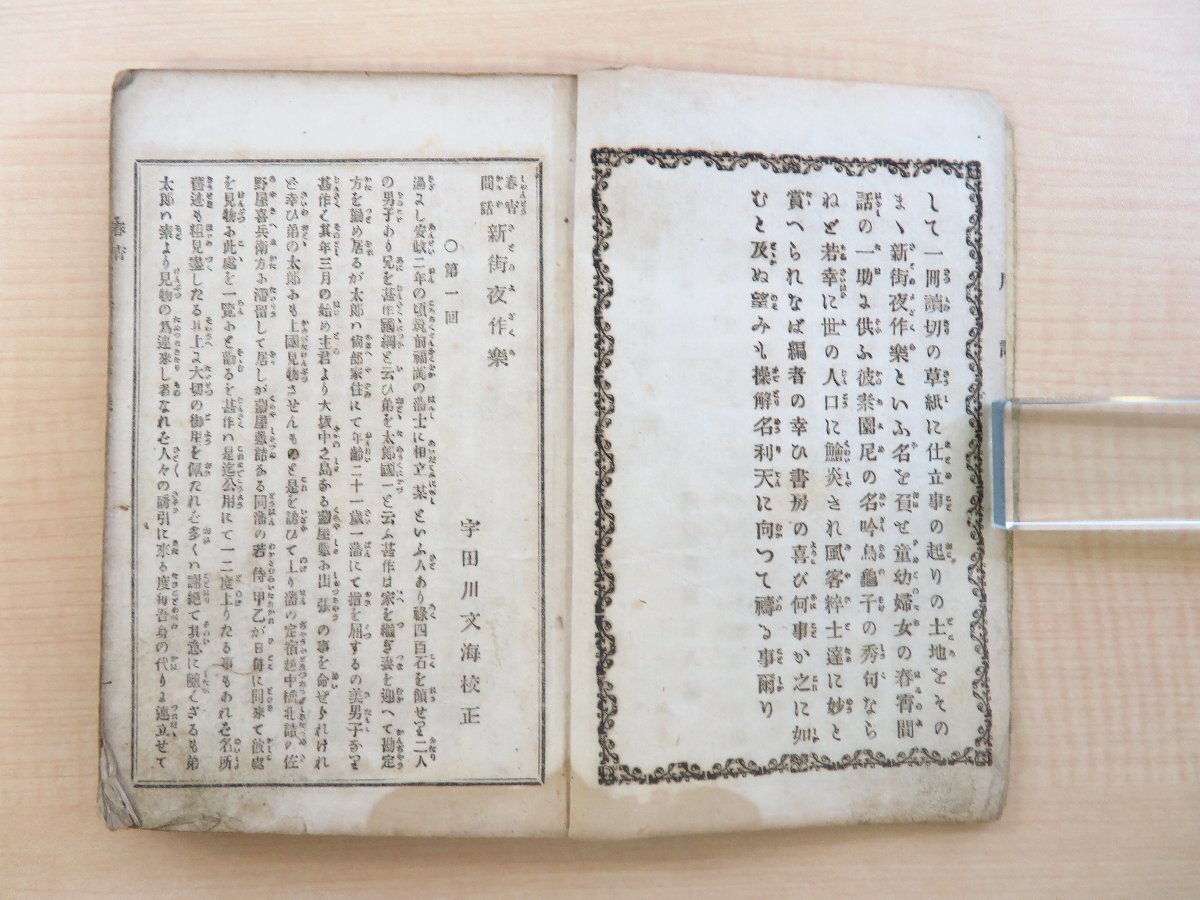 して一冊讀切の草紙に仕立事の起りの土地をその
まゝ新街夜作樂といふ名を負せ童幼婦女の春宵間
話の一助よ供ふ彼素園尼の名吟烏龜子の秀句なら
ねど若幸に世の人口に鱠炙され風客粹士達に妙と
賞へられなば編者の幸ひ書房の喜び何事か之に如
むと及ぬ望みも操觧名利天に向つて禱る事爾り
春宵間話 新街夜作樂
宇田川文海校正
○第一回
過よし安政二年の頃筑前福岡の藩士に相立某といふ人あり祿四百石を領せり二人
の男子あり兄を甚作國綱と云ひ弟を太郎國一と云ふ甚作は家を繼ぎ妻を迎へて勘定
方を勤め居るが太郎ハ尙部家住にて年齡二十一歲一藩にて指を屈するの美男子なり
甚作ハ其年三月の始め主君より大坂中之島なる藏屋敷お出張の事を命ぜられけれ
ど幸ひ弟の太郎よも上國見物させんものと是を誘ひて上り藩の定宿越中橋北詰の佐
野屋喜兵衛方よ滯留して居しが藏屋敷詰なる同藩の若侍甲乙が日每に問來て彼處
を見物よ此處を一覽よと勸るを甚作ハ是迄公用にて一二度上りたる事もあれど名所
舊迹も粗見盡したる其上よ大切の御用を佩たれど多くハ謝絕て其意に隨ハざるも弟
太郎ハ素より見物の爲連來し者なれど人々の誘引に來る度每吾身の代りよ連立せて
春宵